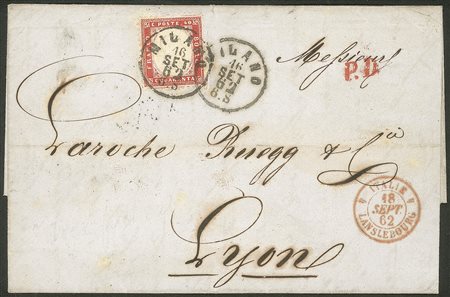 MILANO
16
SET
62
MILANO
16
SET
62
6.S
Messieurs
P.D.
Laroche Ruegg & Cia
Lyon
ITALIE
18
SEPT.
62
LANSLEBOURG